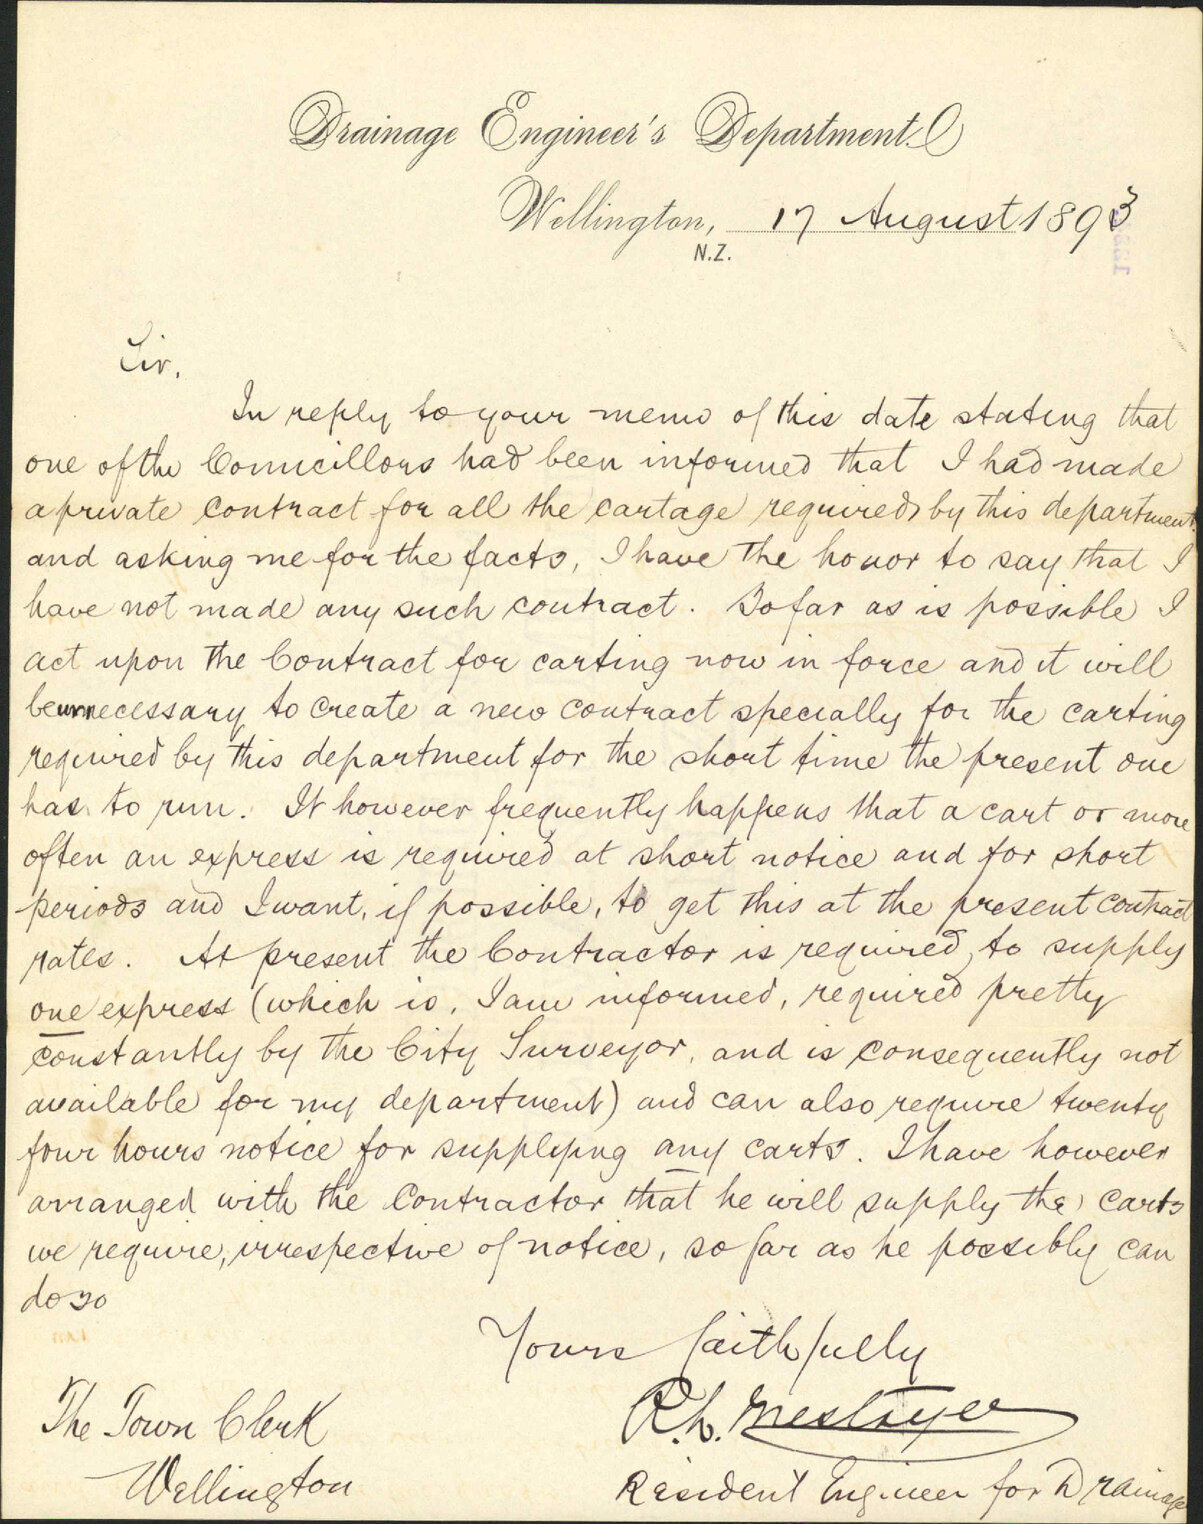 Drainage Engineer's Department.
Wellington, 17 August 1893
N.Z.
Sir,
In reply to your memo of this date stating that
one of the Councillors had been informed that I had made
a private contract for all the cartage required by this department
and asking me for the facts, I have the honor to say that I
have not made any such contract. So far as is possible I
act upon the Contract for carting now in force and it will
be unnecessary to create a new contract specially for the carting
required by this department for the short time the present one
has to run. It however frequently happens that a cart or more
often an express is required at short notice and for short
periods and I want, if possible, to get this at the present contract
rates. At present the Contractor is required to supply
one express (which is, I am informed, required pretty
constantly by the City Surveyor, and is consequently not
available for my department) and can also require twenty
four hours notice for supplying any carts. I have however
arranged with the Contractor that he will supply the carts
we require, irrespective of notice, so far as he possibly can
do so
Yours faithfully
R. L. Mestayer
The Town Clerk
Wellington
Resident Engineer for Drainage